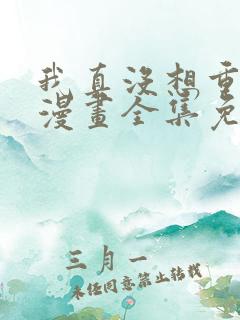 我真没想重
漫畫全集免
三月一
未经同意禁止转载